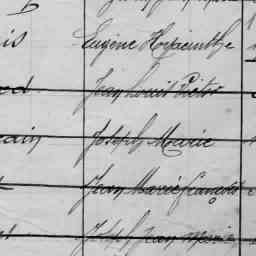 is Eugène Hyacinthe
ed Jean Louis Victor
ain Joseph Marie
Jean Marie François
Joseph Jean Marie